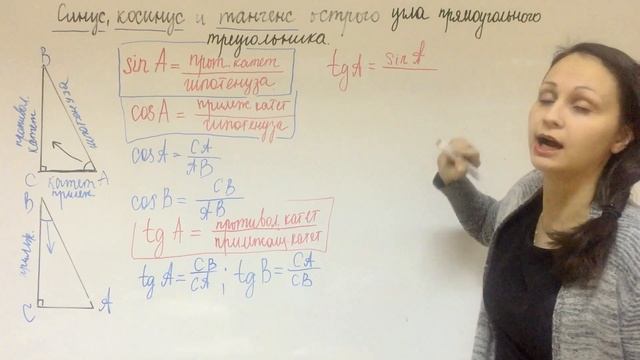 Синус, косинус и тангенс острого угла прямоугольного
треугольника.
sin A = прот. катет / гипотенуза
cos A = прилеж. катет / гипотенуза
cos A = CA / AB
cos B = CB / AB
tg A = противол. катет / прилежащ. катет
tg A = CB / CA ; tg B = CA / CB
tg A = sin A
B
противол.
катет
гипотенуза
C
A
катет
прилеж.
B
прилеж.
C
A